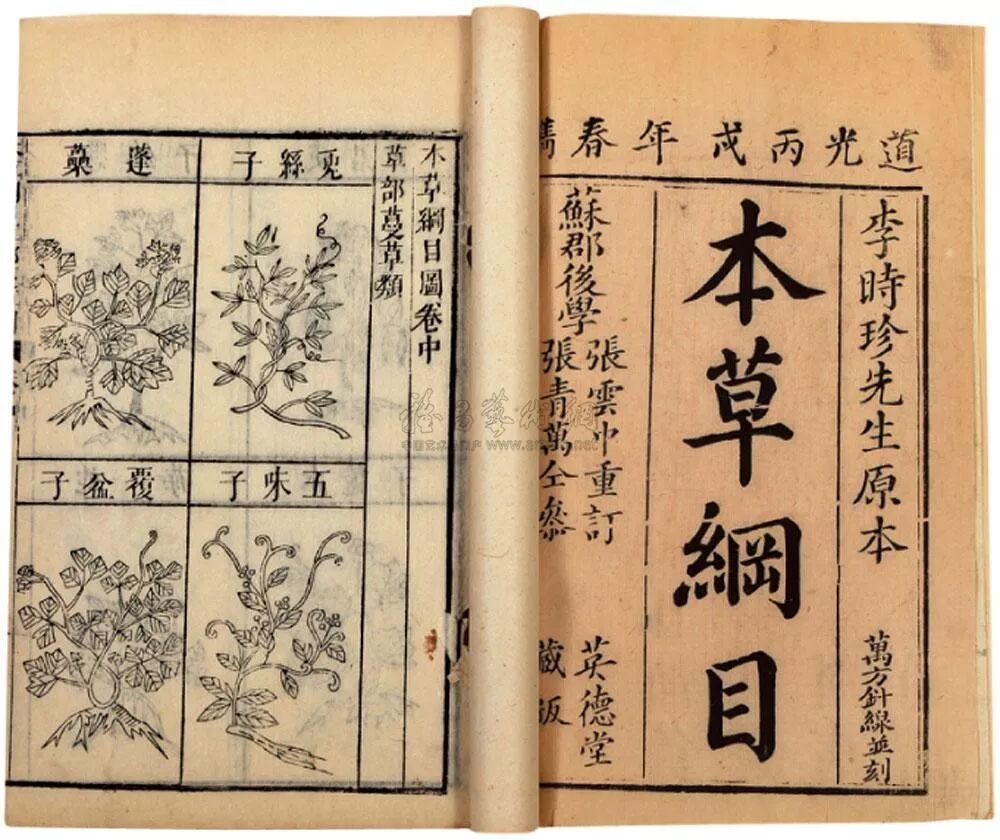 道光丙戌年春鐫
李時珍先生原本 萬方針線並刻
本草綱目
蘇郡後學
張雲中重訂
張青萬仝參
英德堂
藏版
本草綱目圖卷中
草部蔓草類
兎絲子
蓬蘽
五味子
覆盆子